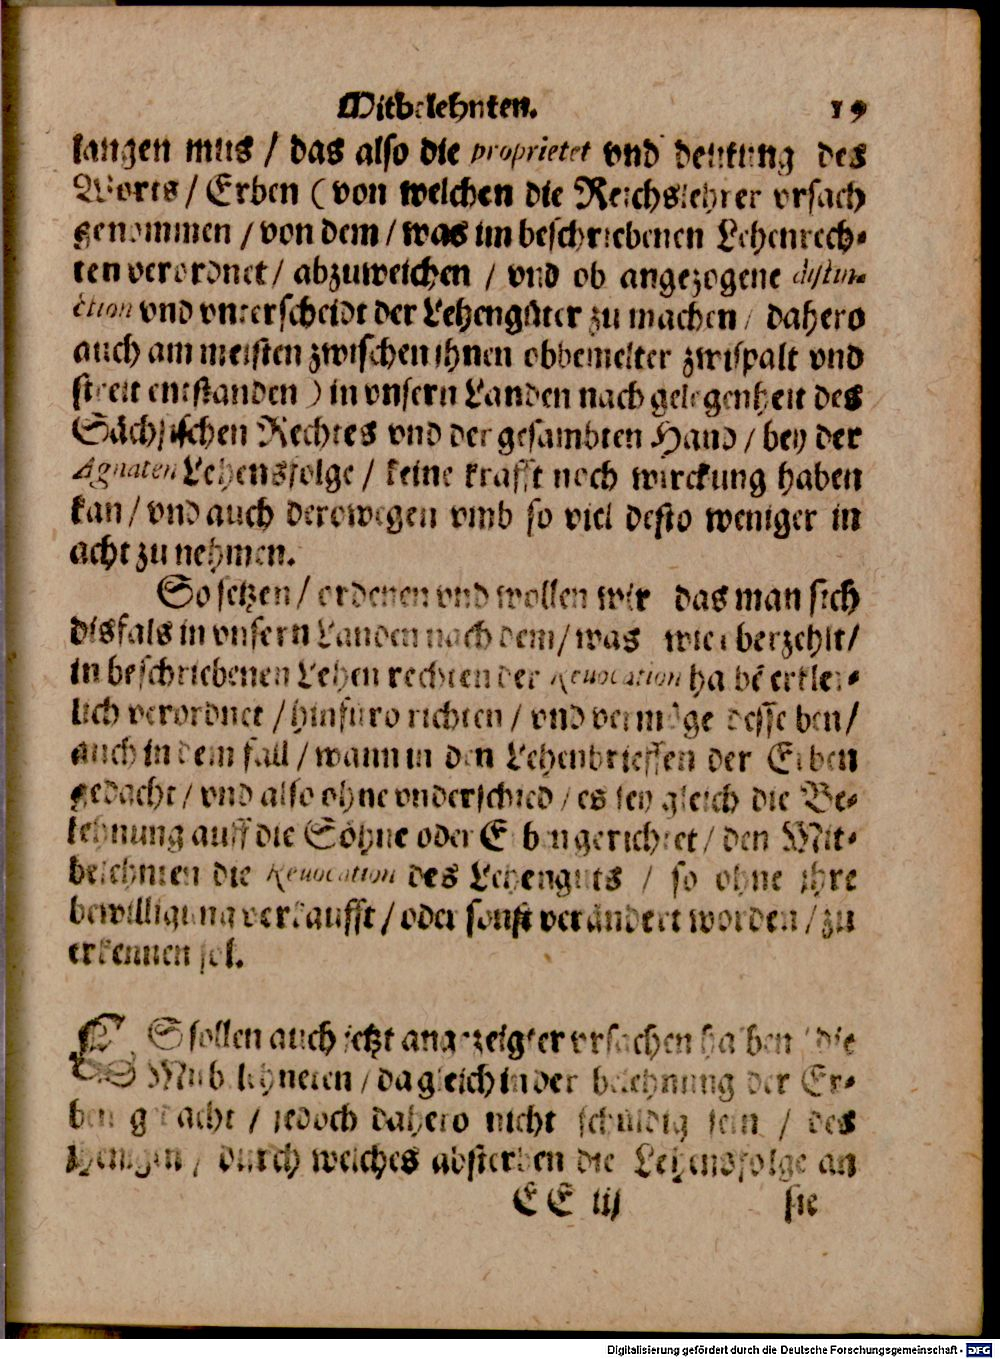 Mitbelehnten. 19
langen mus / das also die proprietet vnd deutung des
Worts / Erben (von welchen die Reichslehrer vrsach
genommen / von dem / was im beschriebenen Lehenrech-
ten verordnet / abzuweichen / vnd ob angezogene distin-
ction vnd vnterscheidt der Lehengüter zu machen / dahero
auch am meisten zwischen ihnen obbemelter zwispalt vnd
streit entstanden) in vnsern Landen nach gelegenheit des
Sächsischen Rechtes vnd der gesambten Hand / bey der
Agnaten Lehensfolge / keine krafft noch wirckung haben
kan / vnd auch derowegen vmb so viel desto weniger in
acht zu nehmen.
So setzen / ordenen vnd wollen wir das man sich
disfals in vnsern Landen nach dem / was wie berzehlt /
in beschriebenen Lehen rechten der Reuocation habē erkler-
lich verordnet / hinfüro richten / vnd vermöge desselben /
auch in dem fall / wann in den Lehenbrieffen der Erben
gedacht / vnd also ohne vnderschied / es sey gleich die Be-
lehnung auff die Söhne oder Erben gerichtet / den Mit-
belehnten die Reuocation des Lehenguts / so ohne ihre
bewilligung verkaufft / oder sonst verändert worden / zu
erkennen sol.
ES sollen auch jetzt angezeigter vrsachen haben / die
Mitbelehneten / da gleich in der belehnung der Er-
ben gedacht / jedoch dahero nicht schuldig sein / des
jhenigen / durch welches absterben die Lehensfolge an
EE iij sie
Digitalisierung gefördert durch die Deutsche Forschungsgemeinschaft - DFG